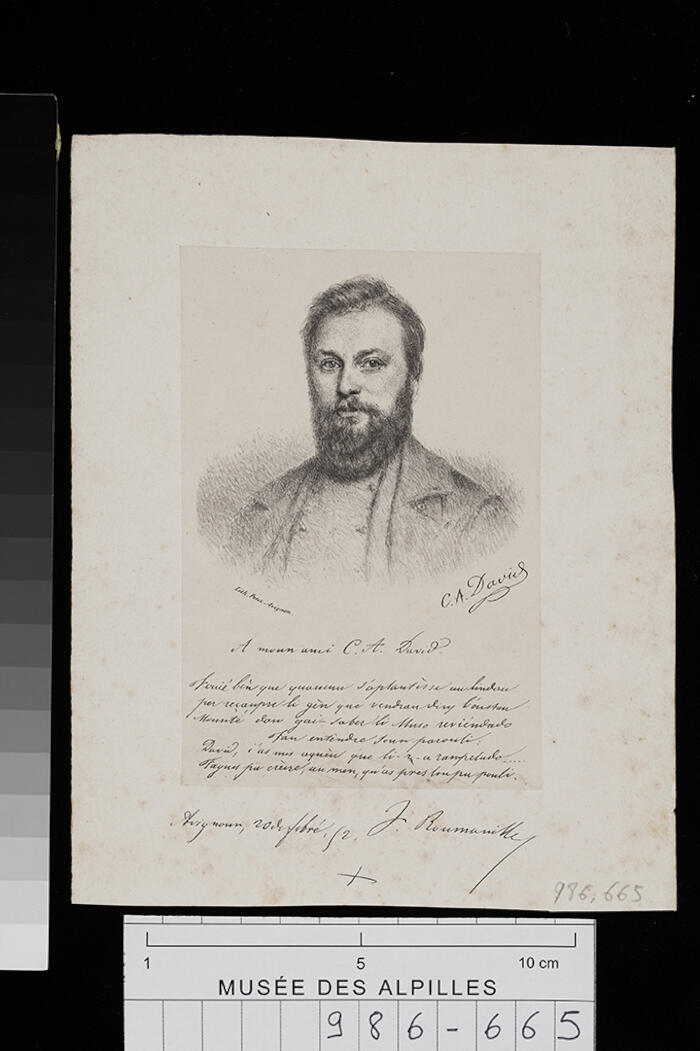 Lith. Peux. Avignon
C. A. David
A moun ami C. A. David.
Fouié bèn que quaucun s'aplantèsse au lindau
per recaupre li gèn que vendran dins l'oustau
Mounté dou gai-saber li Muso reviéudado
Fan entèndre soun parauli.
David, i'as mes aquéu que li-z-a rampelado....
Vagues pa crèire, au men, qu'as pres lou pu pouli.
Avignoun, 20 de febré, 52. J. Roumanille
986,665
1 5 10 cm
MUSÉE DES ALPILLES
986-665